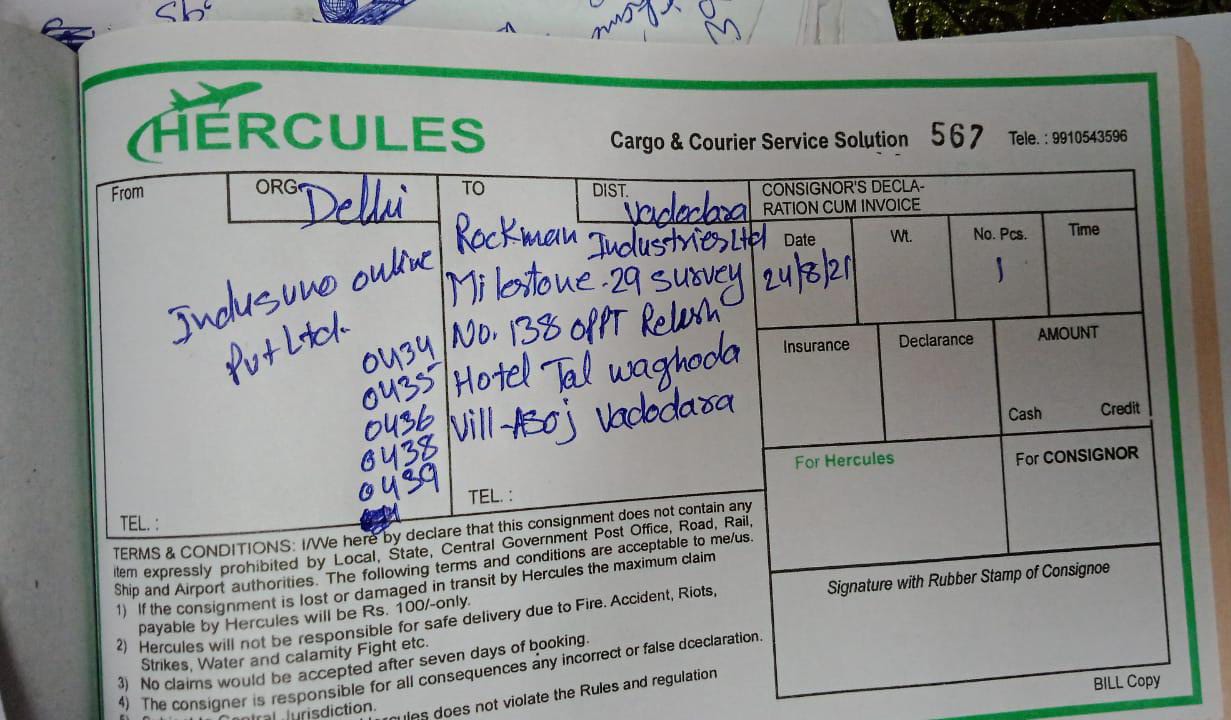 HERCULES
Cargo & Courier Service Solution 567 Tele. : 9910543596
From
ORG. Delhi
Indusuno online
Pvt Ltd.
0434
0435
0436
0438
0439
TEL. :
TO
DIST. Vadodara
Rockman Industries Ltd
Milestone-29 Survey
No. 138 oppt Relesh
Hotel Tal waghoda
Vill-Asoj Vadodara
TEL. :
CONSIGNOR'S DECLA-
RATION CUM INVOICE
Date Wt. No. Pcs. Time
24/8/21 1
Insurance Declarance AMOUNT
Cash Credit
For Hercules For CONSIGNOR
Signature with Rubber Stamp of Consignoe
TERMS & CONDITIONS: I/We here by declare that this consignment does not contain any
item expressly prohibited by Local, State, Central Government Post Office, Road, Rail,
Ship and Airport authorities. The following terms and conditions are acceptable to me/us.
1) If the consignment is lost or damaged in transit by Hercules the maximum claim
payable by Hercules will be Rs. 100/-only.
2) Hercules will not be responsible for safe delivery due to Fire. Accident, Riots,
Strikes, Water and calamity Fight etc.
3) No claims would be accepted after seven days of booking.
4) The consigner is responsible for all consequences any incorrect or false dceclaration.
Central Jurisdiction.
does not violate the Rules and regulation
BILL Copy